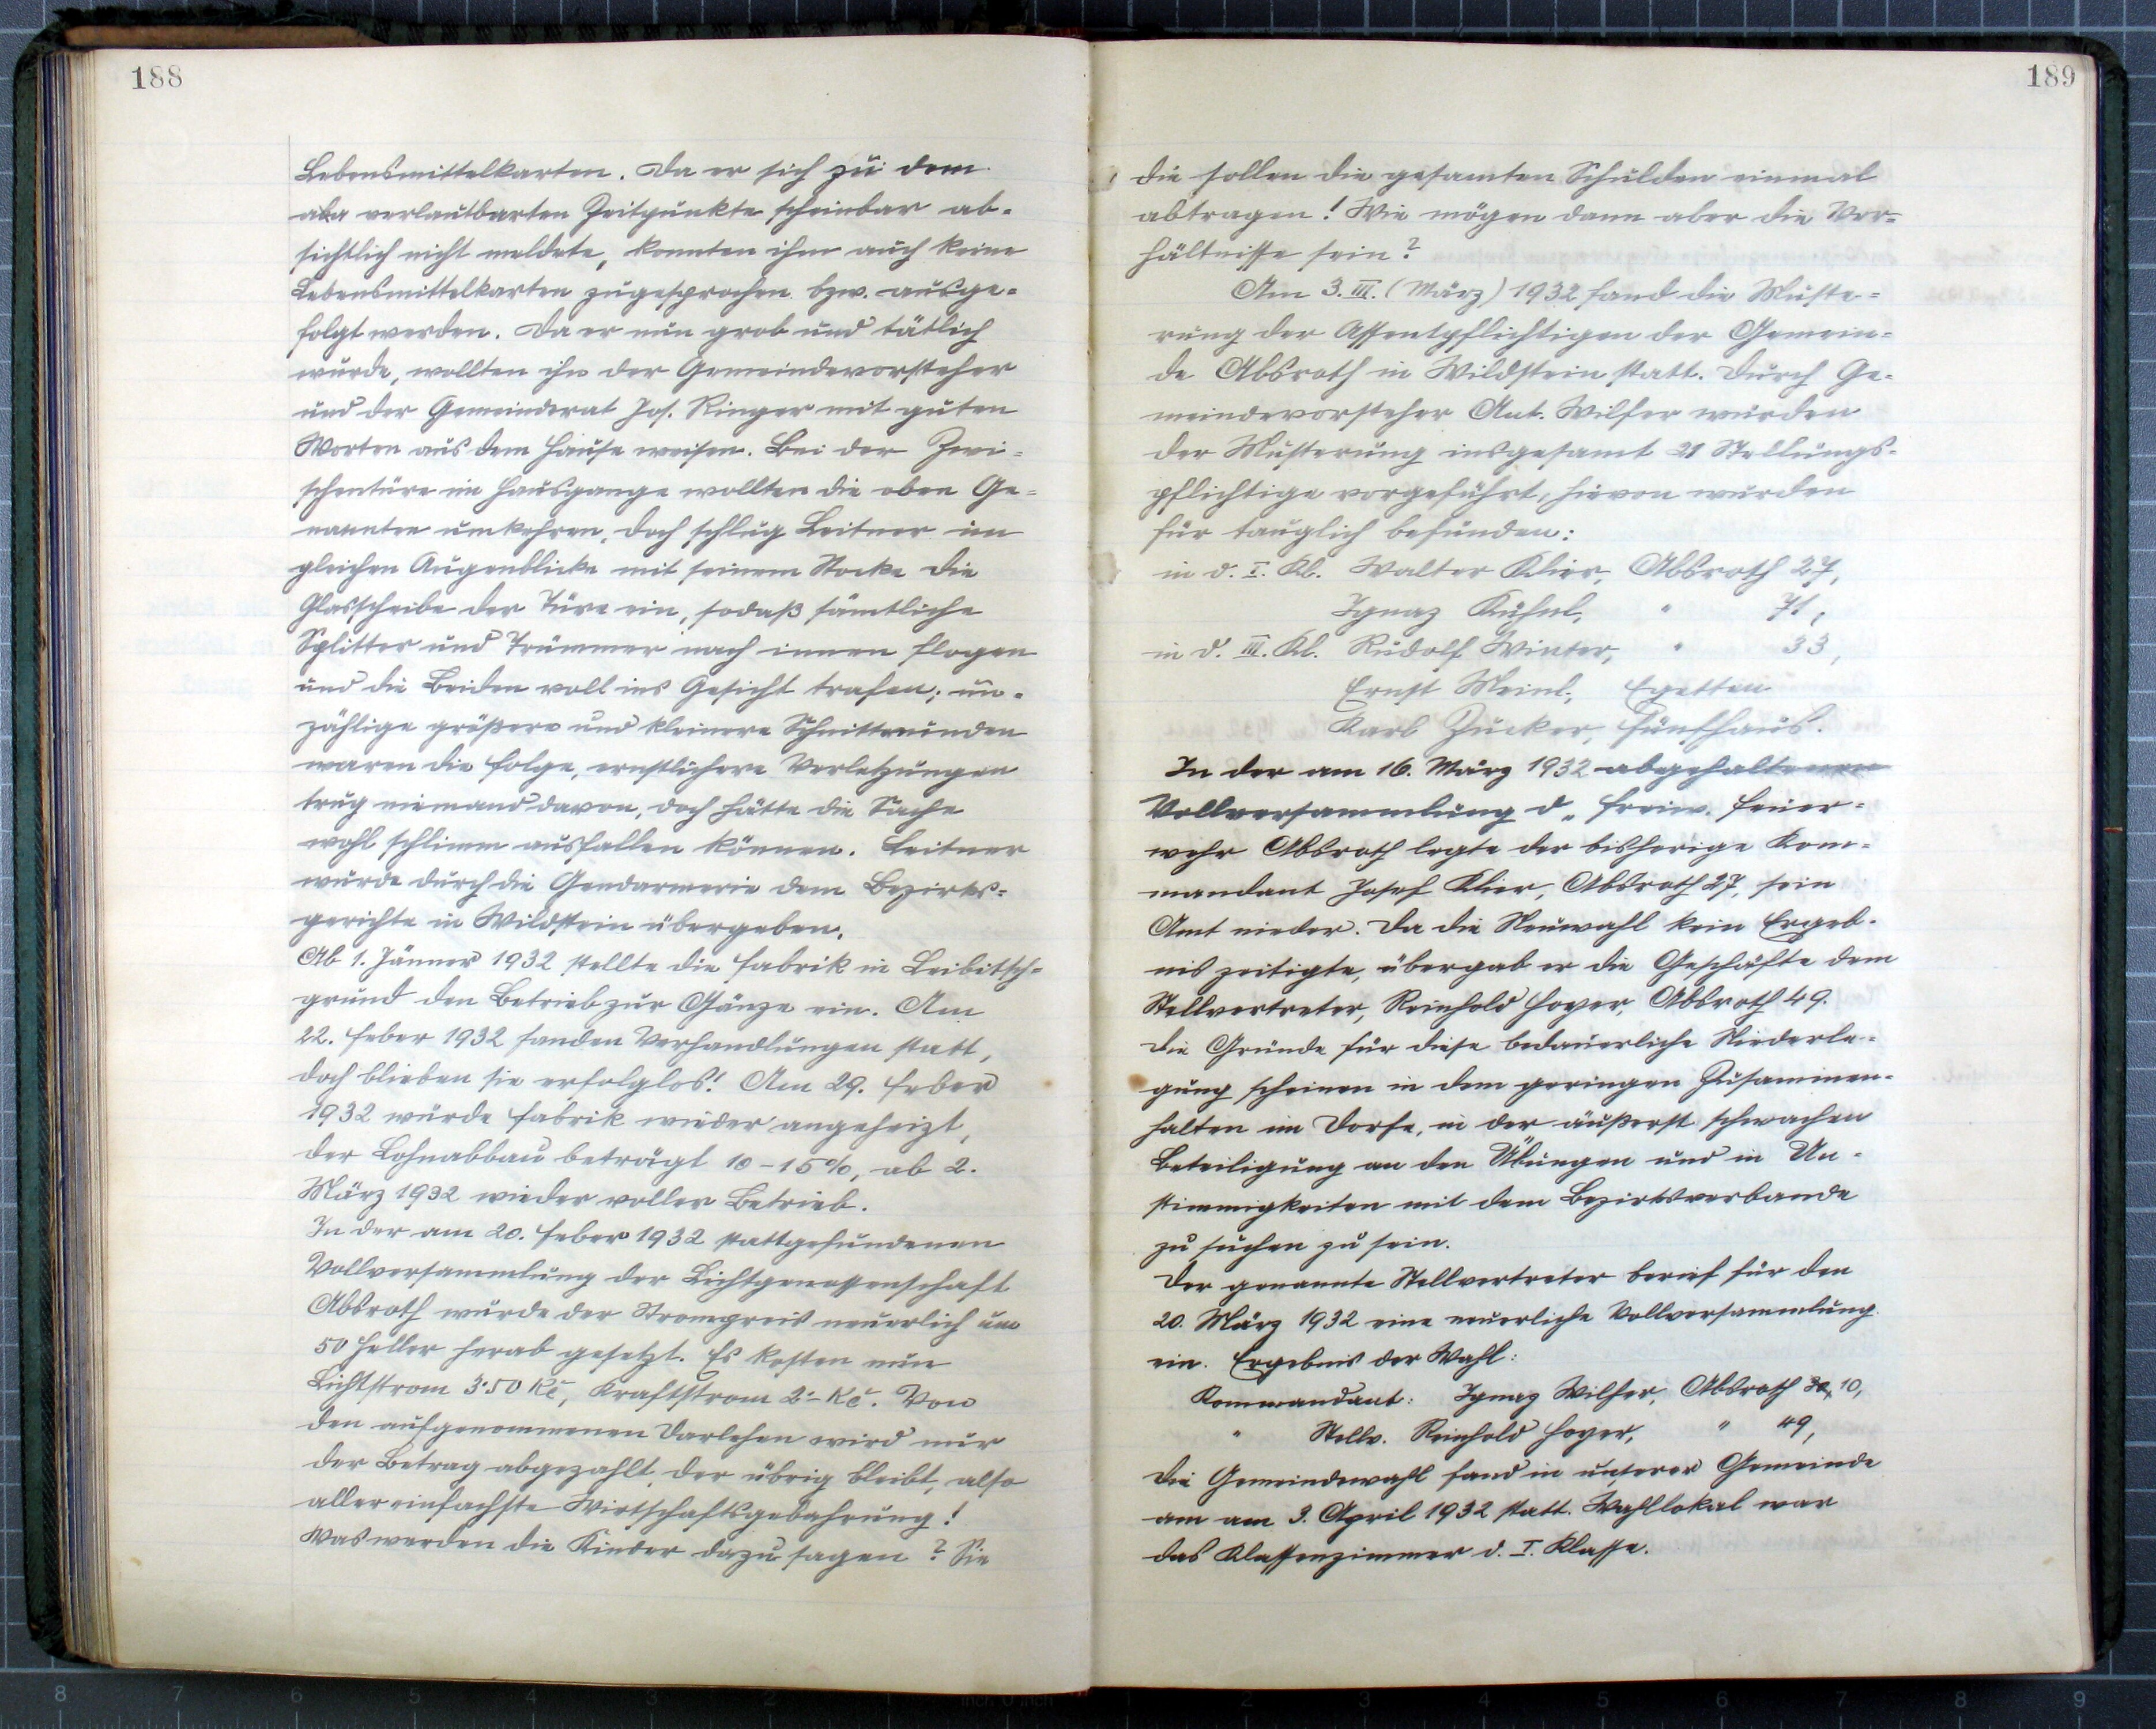 188
Lebensmittelkarten. Da er sich zu dem
verlautbarten Zeitpunkte scheinbar ab-
sichtlich nicht meldete, konnten ihm auch keine
Lebensmittelkarten zugesprochen bzw. ausge-
folgt werden. Da er nun grob und tätlich
wurde, wollten ihn der Gemeindevorsteher
und der Gemeinderat Jos. Ringer mit guten
Worten aus dem Hause weisen. Bei der Zwi-
schentüre im Hausgange wollten die oben Ge-
nannten umkehren, doch schlug Leitner im
gleichen Augenblicke mit seinem Stocke die
Glasscheibe der Türe ein, sodaß sämtliche
Splitter und Trümmer nach innen flogen
und die Beiden voll ins Gesicht trafen; un-
zählige größere und kleinere Schnittwunden
waren die Folge, ernstlichere Verletzungen
trug niemand davon, doch hätte die Sache
wohl schlimm ausfallen können. Leitner
wurde durch die Gendarmerie dem Bezirks-
gerichte in Wildstein übergeben.
Ab 1. Jänner 1932 stellte die Fabrik in Leibitsch-
grund den Betrieb zur Gänze ein. Am
22. Feber 1932 fanden Verhandlungen statt,
doch blieben sie erfolglos! Am 29. Feber
1932 wurde Fabrik wieder angeheizt,
der Lohnabbau beträgt 10-15%, ab 2.
März 1932 wieder voller Betrieb.
In der am 20. Feber 1932 stattgefundenen
Vollversammlung der Lichtgenossenschaft
Absroth wurde der Strompreis neuerlich um
50 Heller herab gesetzt. Es kosten nun
Lichtstrom 3·50 Kč, Kraftstrom 2·- Kč. Von
den aufgenommenen Darlehen wird nur
der Betrag abgezahlt, der übrig bleibt, also
aller einfachste Wirtschaftsgebahrung!
Was werden die Kinder dazu sagen? Sie
189
die sollen die gesamten Schulden einmal
abtragen! Wie mögen dann aber die Ver-
hältnisse sein?
Am 3. III. (März) 1932 fand die Muste-
rung der Assentpflichtigen der Gemein-
de Absroth in Wildstein statt. Durch Ge-
meindevorsteher Ant. Wilfer wurden
der Musterung insgesamt 21 Stellungs-
pflichtige vorgeführt, hievon wurden
für tauglich befunden:
in d. I. Kl. Walter Klier, Absroth 27,
Ignaz Kühnl, " 71,
in d. III. Kl. Rudolf Winter, " 33,
Ernst Meinl, Egetten
Karl Zucker, Fünfhaus.
In der am 16. März 1932 abgehaltenen
Vollversammlung d. freiw. Feuer-
wehr Absroth legte der bisherige Kom-
mandant Josef Klier, Absroth 27, sein
Amt nieder. Da die Neuwahl kein Ergeb-
nis zeitigte, übergab er die Geschäfte dem
Stellvertreter, Reinhold Hoyer, Absroth 49.
Die Gründe für diese bedauerliche Niederle-
gung scheinen in dem geringen Zusammen-
halten im Dorfe, in der äußerst schwachen
Beteiligung an den Übungen und in Un-
stimmigkeiten mit dem Bezirksverbande
zu suchen zu sein.
Der genannte Stellvertreter berief für den
20. März 1932 eine neuerliche Vollversammlung
ein. Ergebnis der Wahl:
Kommandant: Ignaz Wilfer, Absroth 10,
" Stellv. Reinhold Hoyer, " 49,
Die Gemeindewahl fand in unserer Gemeinde
am am 3. April 1932 statt. Wahllokal war
das Klassenzimmer d. I. Klasse.